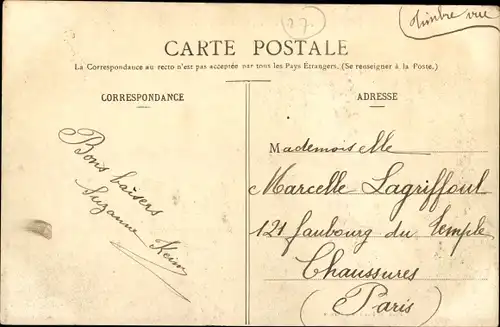 27
Timbre vue
CARTE POSTALE
La Correspondance au recto n'est pas acceptée par tous les Pays Étrangers. (Se renseigner à la Poste.)
CORRESPONDANCE
Bons baisers
Suzanne Keim
ADRESSE
Mademoiselle
Marcelle Lagriffoul
121 faubourg du Temple
Chaussures
(Paris)